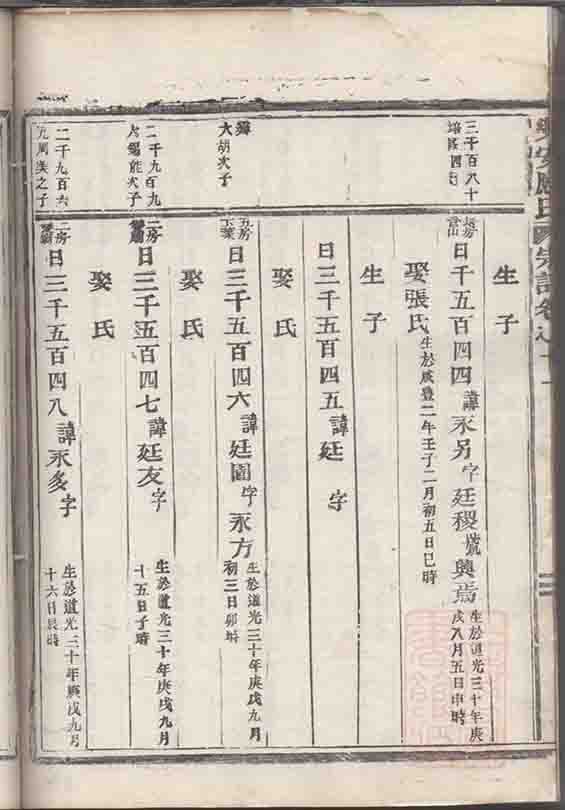 樂安應氏宗譜卷之十一
生子
三千百八十
長房
日千五百四四諱永另字廷稷號興焉
生於道光三十年庚
戌八月五日申時
娶張氏生於咸豐二年壬子二月初五日巳時
生子
日三千五百四五諱廷 字
娶氏
大胡次子
五房
日三千五百四六諱廷圖字永方
生於道光三十年庚戌九月
初三日卯時
娶氏
二千九百九
次子
二房
日三千五百四七諱廷友字
生於道光三十年庚戌九月
十五日子時
娶氏
二千九百六
九周美之子
二房
日三千五百四八諱永多字
生於道光三十年庚戌九月
十六日辰時